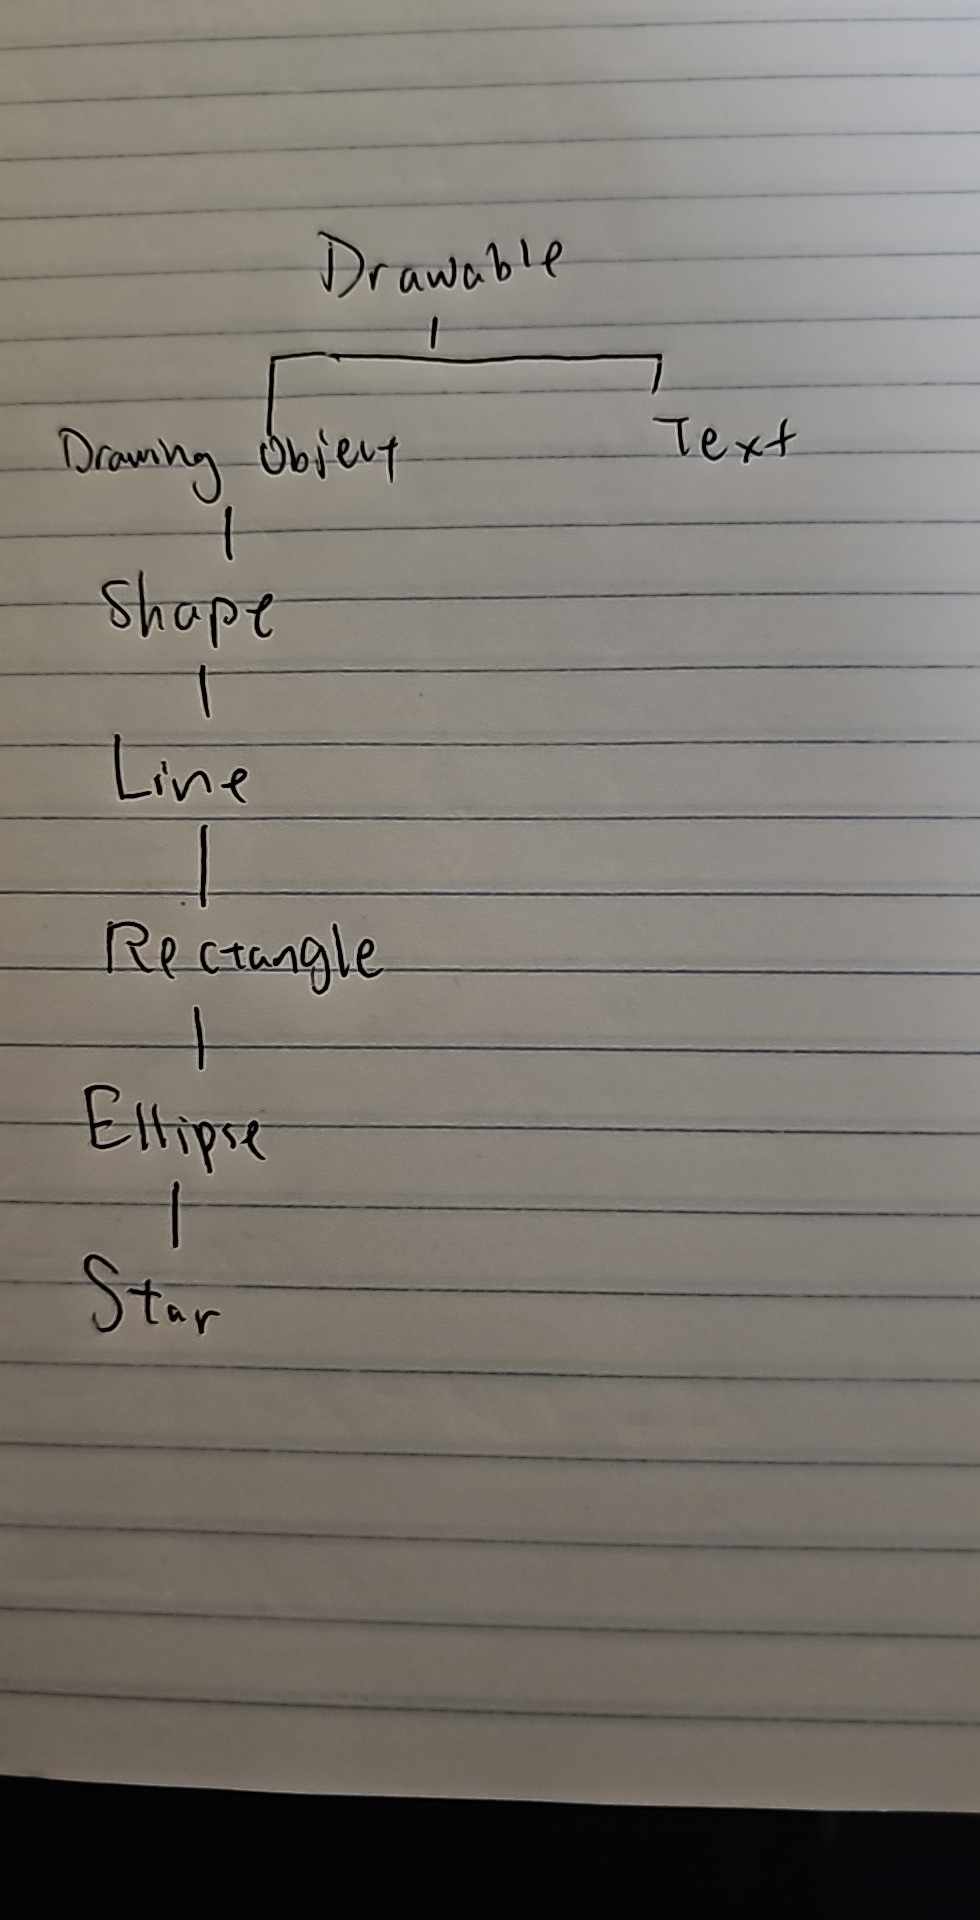 Drawable
Drawing Object Text
Shape
Line
Rectangle
Ellipse
Star